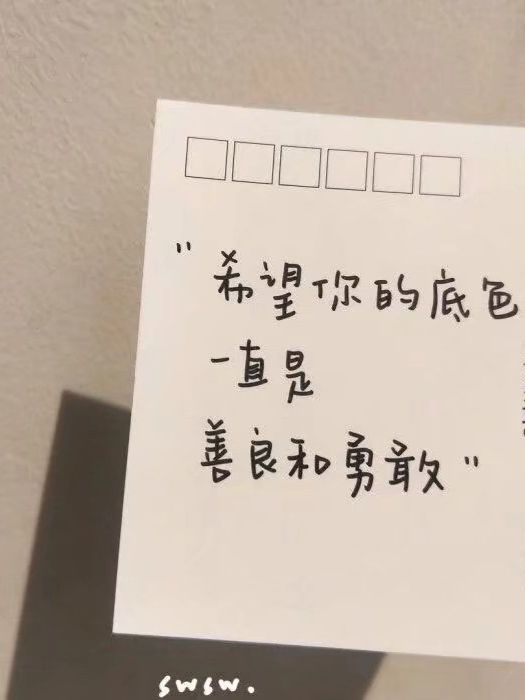 "希望你的底色
一直是
善良和勇敢"
swsw.